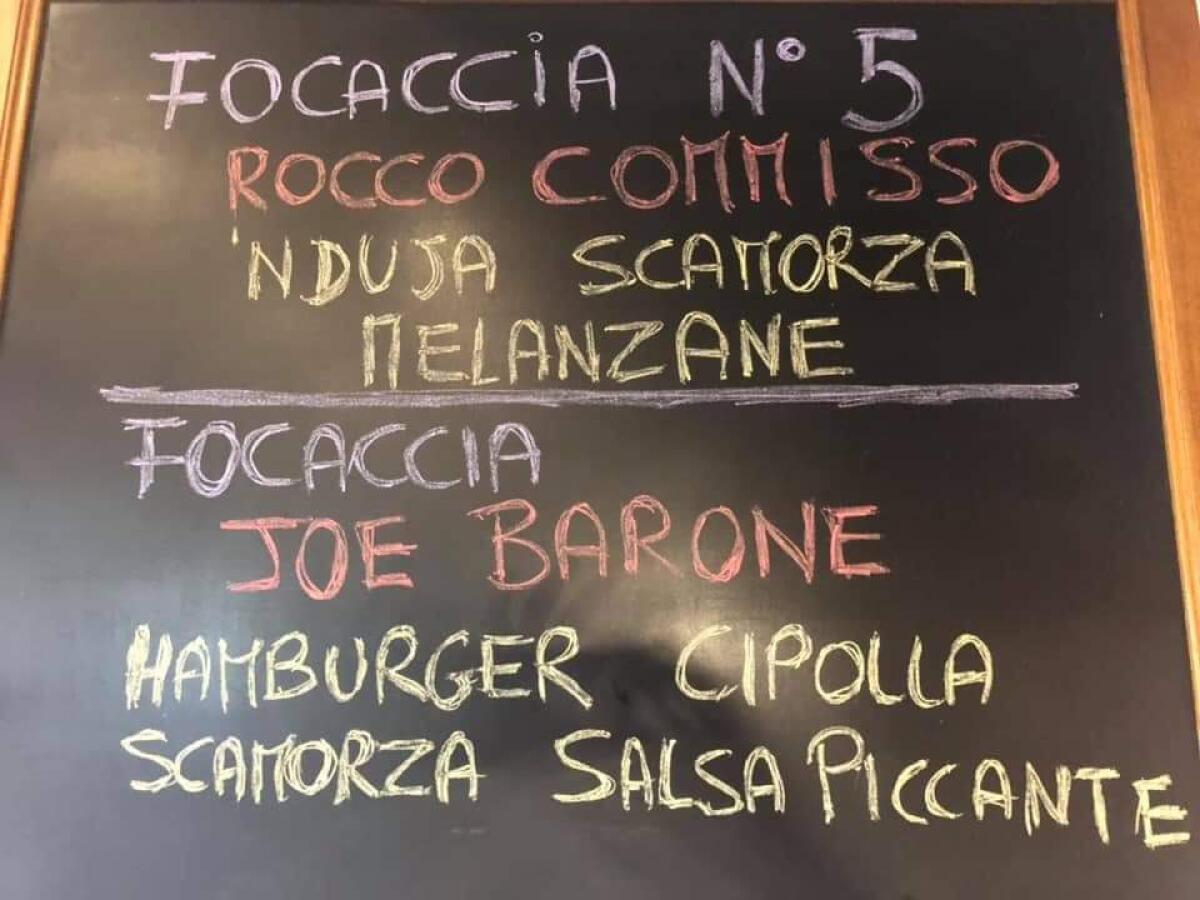 FOCACCIA N° 5
ROCCO COMMISSO
'NDUJA SCAMORZA
MELANZANE
FOCACCIA
JOE BARONE
HAMBURGER CIPOLLA
SCAMORZA SALSA PICCANTE